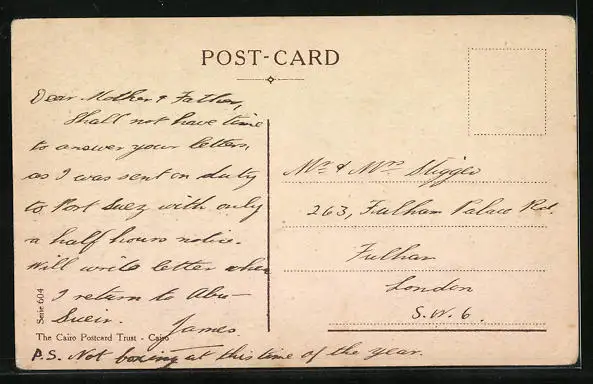 POST-CARD
Dear Mother & Father,
Shall not have time
to answer your letters,
as I was sent on duty
to Port Suez with only
a half hours notice.
Will write letter when
I return to Abu-
Sueir.
James
P.S. Not boxing at this time of the year.
Mr & Mrs
263, Fulham Palace Rd.
Fulham
London
S.W.6.
Serie 604
The Cairo Postcard Trust - Cairo